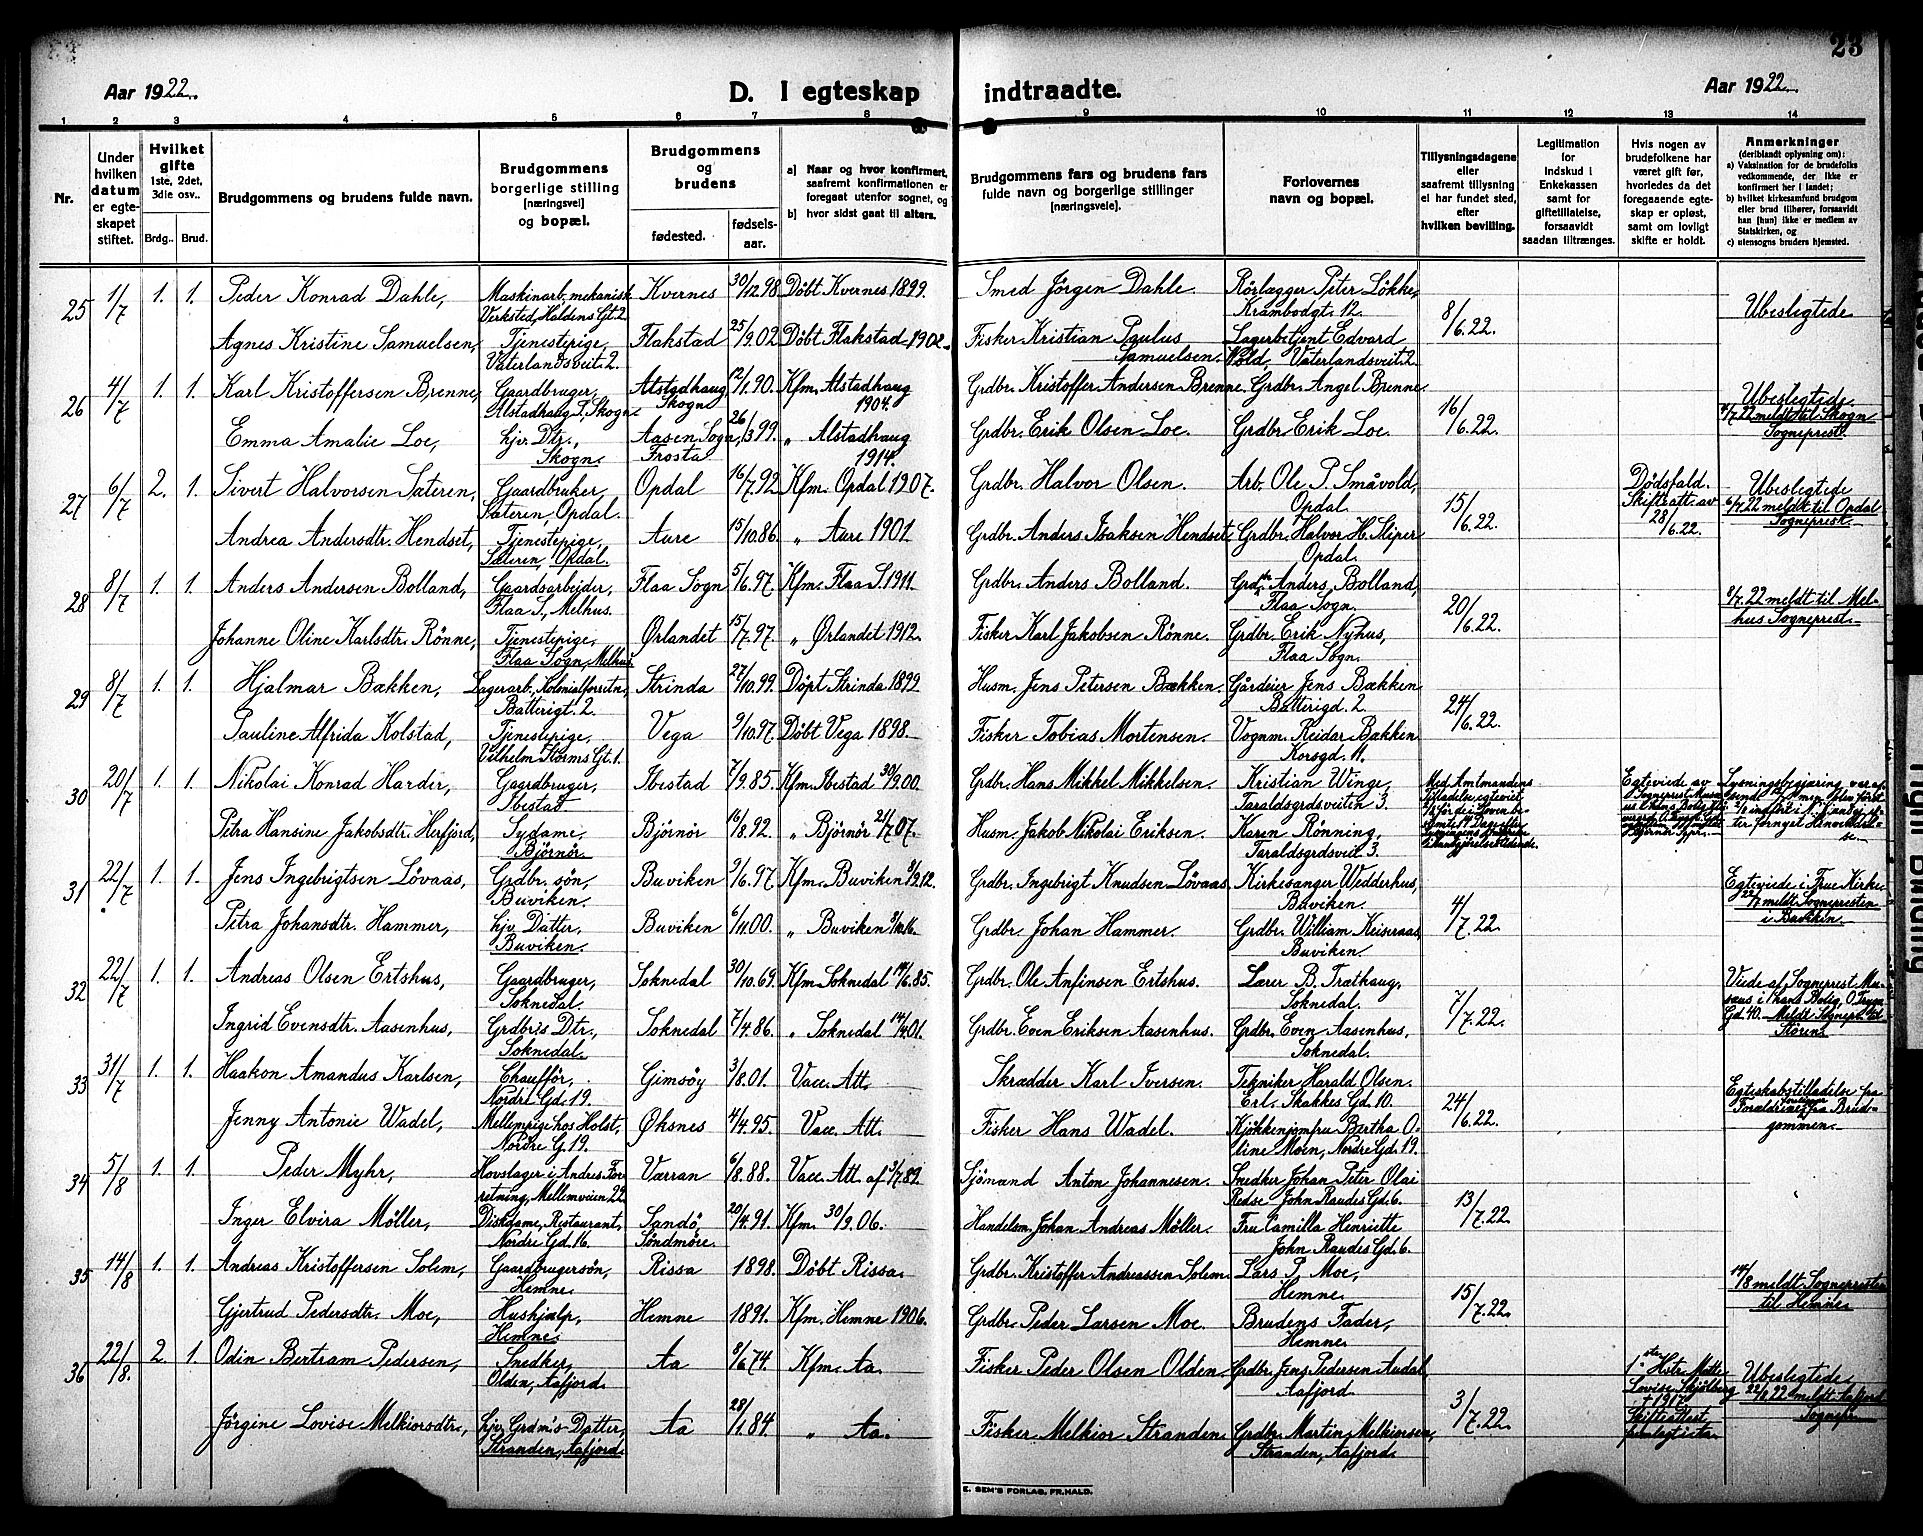 23
Aar 1922.
D. I egteskap indtraadte.
Aar 1922.
1 2 3 4 5 6 7 8 9 10 11 12 13 14
Nr.
Under hvilken datum er egteskapet stiftet.
Hvilket gifte
1ste, 2det, 3die osv..
Brdg.. Brud.
Brudgommens og brudens fulde navn.
Brudgommens borgerlige stilling [næringsvei] og bopæl.
Brudgommens og brudens
fødested.
fødselsaar.
a) Naar og hvor konfirmert, saafremt konfirmationen er foregaat utenfor sognet, og
b) hvor sidst gaat til alters.
Brudgommens fars og brudens fars fulde navn og borgerlige stillinger [næringsveie].
Forlovernes navn og bopæl.
Tillysningsdagene eller saafremt tillysning ei har fundet sted, efter hvilken bevilling.
Legitimation for Indskud i Enkekassen samt for giftetillatelse, forsaavidt saadan tiltrænges.
Hvis nogen av brudefolkene har været gift før, hvorledes da det foregaaende egteskap er opløst, samt om lovligt skifte er holdt.
Anmerkninger
(deriblandt oplysning om):
a) Vaksination for de brudefolks vedkommende, der ikke er konfirmert her i landet;
b) hvilket kirkesamfund brudgom eller brud tilhører, forsaavidt han [hun] ikke er medlem av Statskirken, og
c) utensogns bruders hjemsted.
25 1/7 1. 1. Peder Konrad Dahle, Maskinarb. mekanisk Verksted, Haldens Gt. 2 Kvernes 30/12.98 Döbt Kvernes 1899. Smed Jörgen Dahle Rörlægger Peter Løkke, Krambodgt. 12. 8/6.22. Ubeslegtede
Agnes Kristine Samuelsen, Tjenestepige, Vaterlandsveit 2. Flakstad 25/9.02 Döbt Flakstad 1902. Fisker Kristian Paulus Samuelsen. Lagerbetjent Edvard Wold, Vaterlandsveit 2
26 4/7 1. 1. Karl Kristoffersen Brenne, Gaardbruger, Alstadhaug S, Skogn Alstadhaug Skogn 12/1.90. Kfm. Alstadhaug 1904. Grdbr. Kristoffer Andersen Brenne. Grdbr. Angel Brenne 16/6.22. Ubeslegtede. 4/7.22 meldt til Skogn Sogneprest.
Emma Amalie Loe, hjv. Dtr., Skogn. Aasen Sogn, Frosta 26/3.99. " Alstadhaug 1914. Grdbr. Erik Olsen Loe. Grdbr. Erik Loe.
27 6/7 2. 1. Sivert Halvorsen Sæteren, Gaardbruker, Sæteren, Opdal. Opdal 16/7.92 Kfm. Opdal 1907. Grdbr. Halvor Olsen. Arb. Ole P. Småvold, Opdal. 15/6.22. Dödsfald. Skifteatt. av 28/6.22. Ubeslegtede 6/7.22 meldt til Opdal Sogneprest.
Andrea Andersdtr. Hendset, Tjenestepige, Sæteren, Opdal. Aure 15/10.86. " Aure 1901 Grdbr. Anders Isaksen Hendset Grdbr. Halvor H. Sliper Opdal.
28 8/7 1. 1. Anders Andersen Bolland, Gaardsarbeider, Flaa S, Melhus. Flaa Sogn 5/6.97. Kfm. Flaa S. 1911. Grdbr. Anders Bolland. Anders Bolland, Flaa Sogn. 20/6.22. 8/7.22 meldt til Melhus Sogneprest.
Johanne Oline Karlsdtr. Rönne, Tjenestepige, Flaa Sogn, Melhus Ørlandet 15/7.97. " Ørlandet 1912. Fisker Karl Jakobsen Rönne. Grdbr. Erik Nyhus, Flaa Sogn.
29 8/7 1. 1. Hjalmar Bækken, Lagerarb., Kolonialforretn. Batterigt. 2. Strinda 27/10.99. Döpt Strinda 1899 Husm. Jens Petersen Bækken. Gårdeier Jens Bækken Batterigd. 2 24/6.22.
Pauline Alfrida Kolstad, Tjenestepige, Vilhelm Storms Gt. 1. Vega 9/10.97. Döbt Vega 1898. Fisker Tobias Mortensen. Vognm. Reidar Bækken Korsgd. 11.
30 20/7 1. 1. Nikolai Konrad Harder, Gaardbruger, Ibestad Ibestad 7/9.85. Kfm. Ibestad 30/9.00. Grdbr. Hans Mikkel Mikkelsen. Kristian Winge, Taraldsgrdsveiten 3. Med Amtmandens Tilladelse egteviet
Petra Hansine Jakobsdtr. Herfjord, Sydame, Björnör. Björnör 16/8.92. " Björnör 21/7.07. Husm. Jakob Nikolai Eriksen. Karen Rönning, Taraldsgrdsveit 3.
31 22/7 1. 1. Jens Ingebrigtsen Lövaas, Grdbr. sön, Buviken. Buviken 2/6.97. Kfm. Buviken Grdbr. Ingebrigt Knudsen Lövaas. Kirkesanger Wedderhus, Buviken. 4/7.22. Egteviede i Frue Kirke 22/7 meldt Sognepresten i Buviken.
Petra Johansdtr. Hammer, hjv. Datter, Buviken. Buviken 6/11.00. " Buviken Grdbr. Johan Hammer. Grdbr. William Keiseraas, Buviken.
32 22/7 1. 1. Andreas Olsen Ertshus, Gaardbruger, Soknedal Soknedal 30/10.69. Kfm. Soknedal 14/6.85. Grdbr. Ole Anfinsen Ertshus. Lærer B. Træthaug, Soknedal. 7/7.22. Viede af Sogneprest Musæus i hans Bolig, O. Tryg. Gd. 40. Meldt Sognepr. til Støren.
Ingrid Evensdtr. Aasenhus, Grdbr's Dtr., Soknedal. Soknedal 7/4.86. " Soknedal 14/4.01. Grdbr. Even Eriksen Aasenhus. Grdbr. Even Aasenhus, Soknedal.
33 31/7 1. 1. Haakon Amandus Karlsen, Chaufför, Nordre Gd. 19. Gimsöy 3/8.01. Vacc. Att. Skrædder Karl Iversen. Tekniker Harald Olsen. Erl. Skakkes Gd. 10. 24/6.22. Egteskabstilladelse fra Forældrene fra Brudgommen.
Jenny Antonie Wadel, Mellempige hos Holst, Nordre G. 19. Øksnes 4/4.95. Vacc. Att. Fisker Hans Wadel. Kjökkenjomfru Bertha Oline Moen, Nordre Gd. 19.
34 5/8 1. 1. Peder Myhr, Hovslager i Andres Forretning, Mellemveien 22 Værran 6/8.88. Vacc. Att. af 3/7.89. Sjömand Anton Johannesen. Snedker Johan Peter Olai Redse John Raudes Gd. 6. 13/7.22.
Inger Elvira Möller, Diskdame, Restaurant, Nordre Gd. 16. Sandö, Söndmöre. 20/4.91. Kfm. 30/9.06. Handelsm. Johan Andreas Möller. Fru Camilla Henriette John Raudes Gd. 6.
35 14/8 1. 1. Andreas Kristoffersen Solem, Gaardbrugersön, Hemne Rissa 1898. Döbt Rissa. Grdbr. Kristoffer Andreassen Solem. Lars P. Moe, Hemne. 15/7.22. 14/8 meldt Sognepresten til Hemne
Gjertrud Pedersdtr. Moe, Hushjælp, Hemne. Hemne 1891. Kfm. Hemne 1906. Grdbr. Peder Larsen Moe. Brudens Fader, Hemne
36 22/8. 2. 1. Odin Bertram Pedersen, Snedker, Olden, Aafjord Aa 8/6.74. Kfm. Aa. Fisker Peder Olsen Olden. Grdbr. Jens Pedersen Audal, Aafjord. 3/7.22. 1ste Hstr. Mette Lovise Skjølberg † 1917 Skifteattest Ubeslegtede 22/8.22 meldt Aafjord Sognepr.
Jörgine Lovise Melkiorsdtr., hjv. Grdm's Datter, Stranden, Aafjord. Aa 28/1.84. " Aa. Fisker Melkior Stranden. Grdbr. Martin Melkiorsen, Stranden, Aafjord.
E. SEM'S FORLAG, FR.HALD.